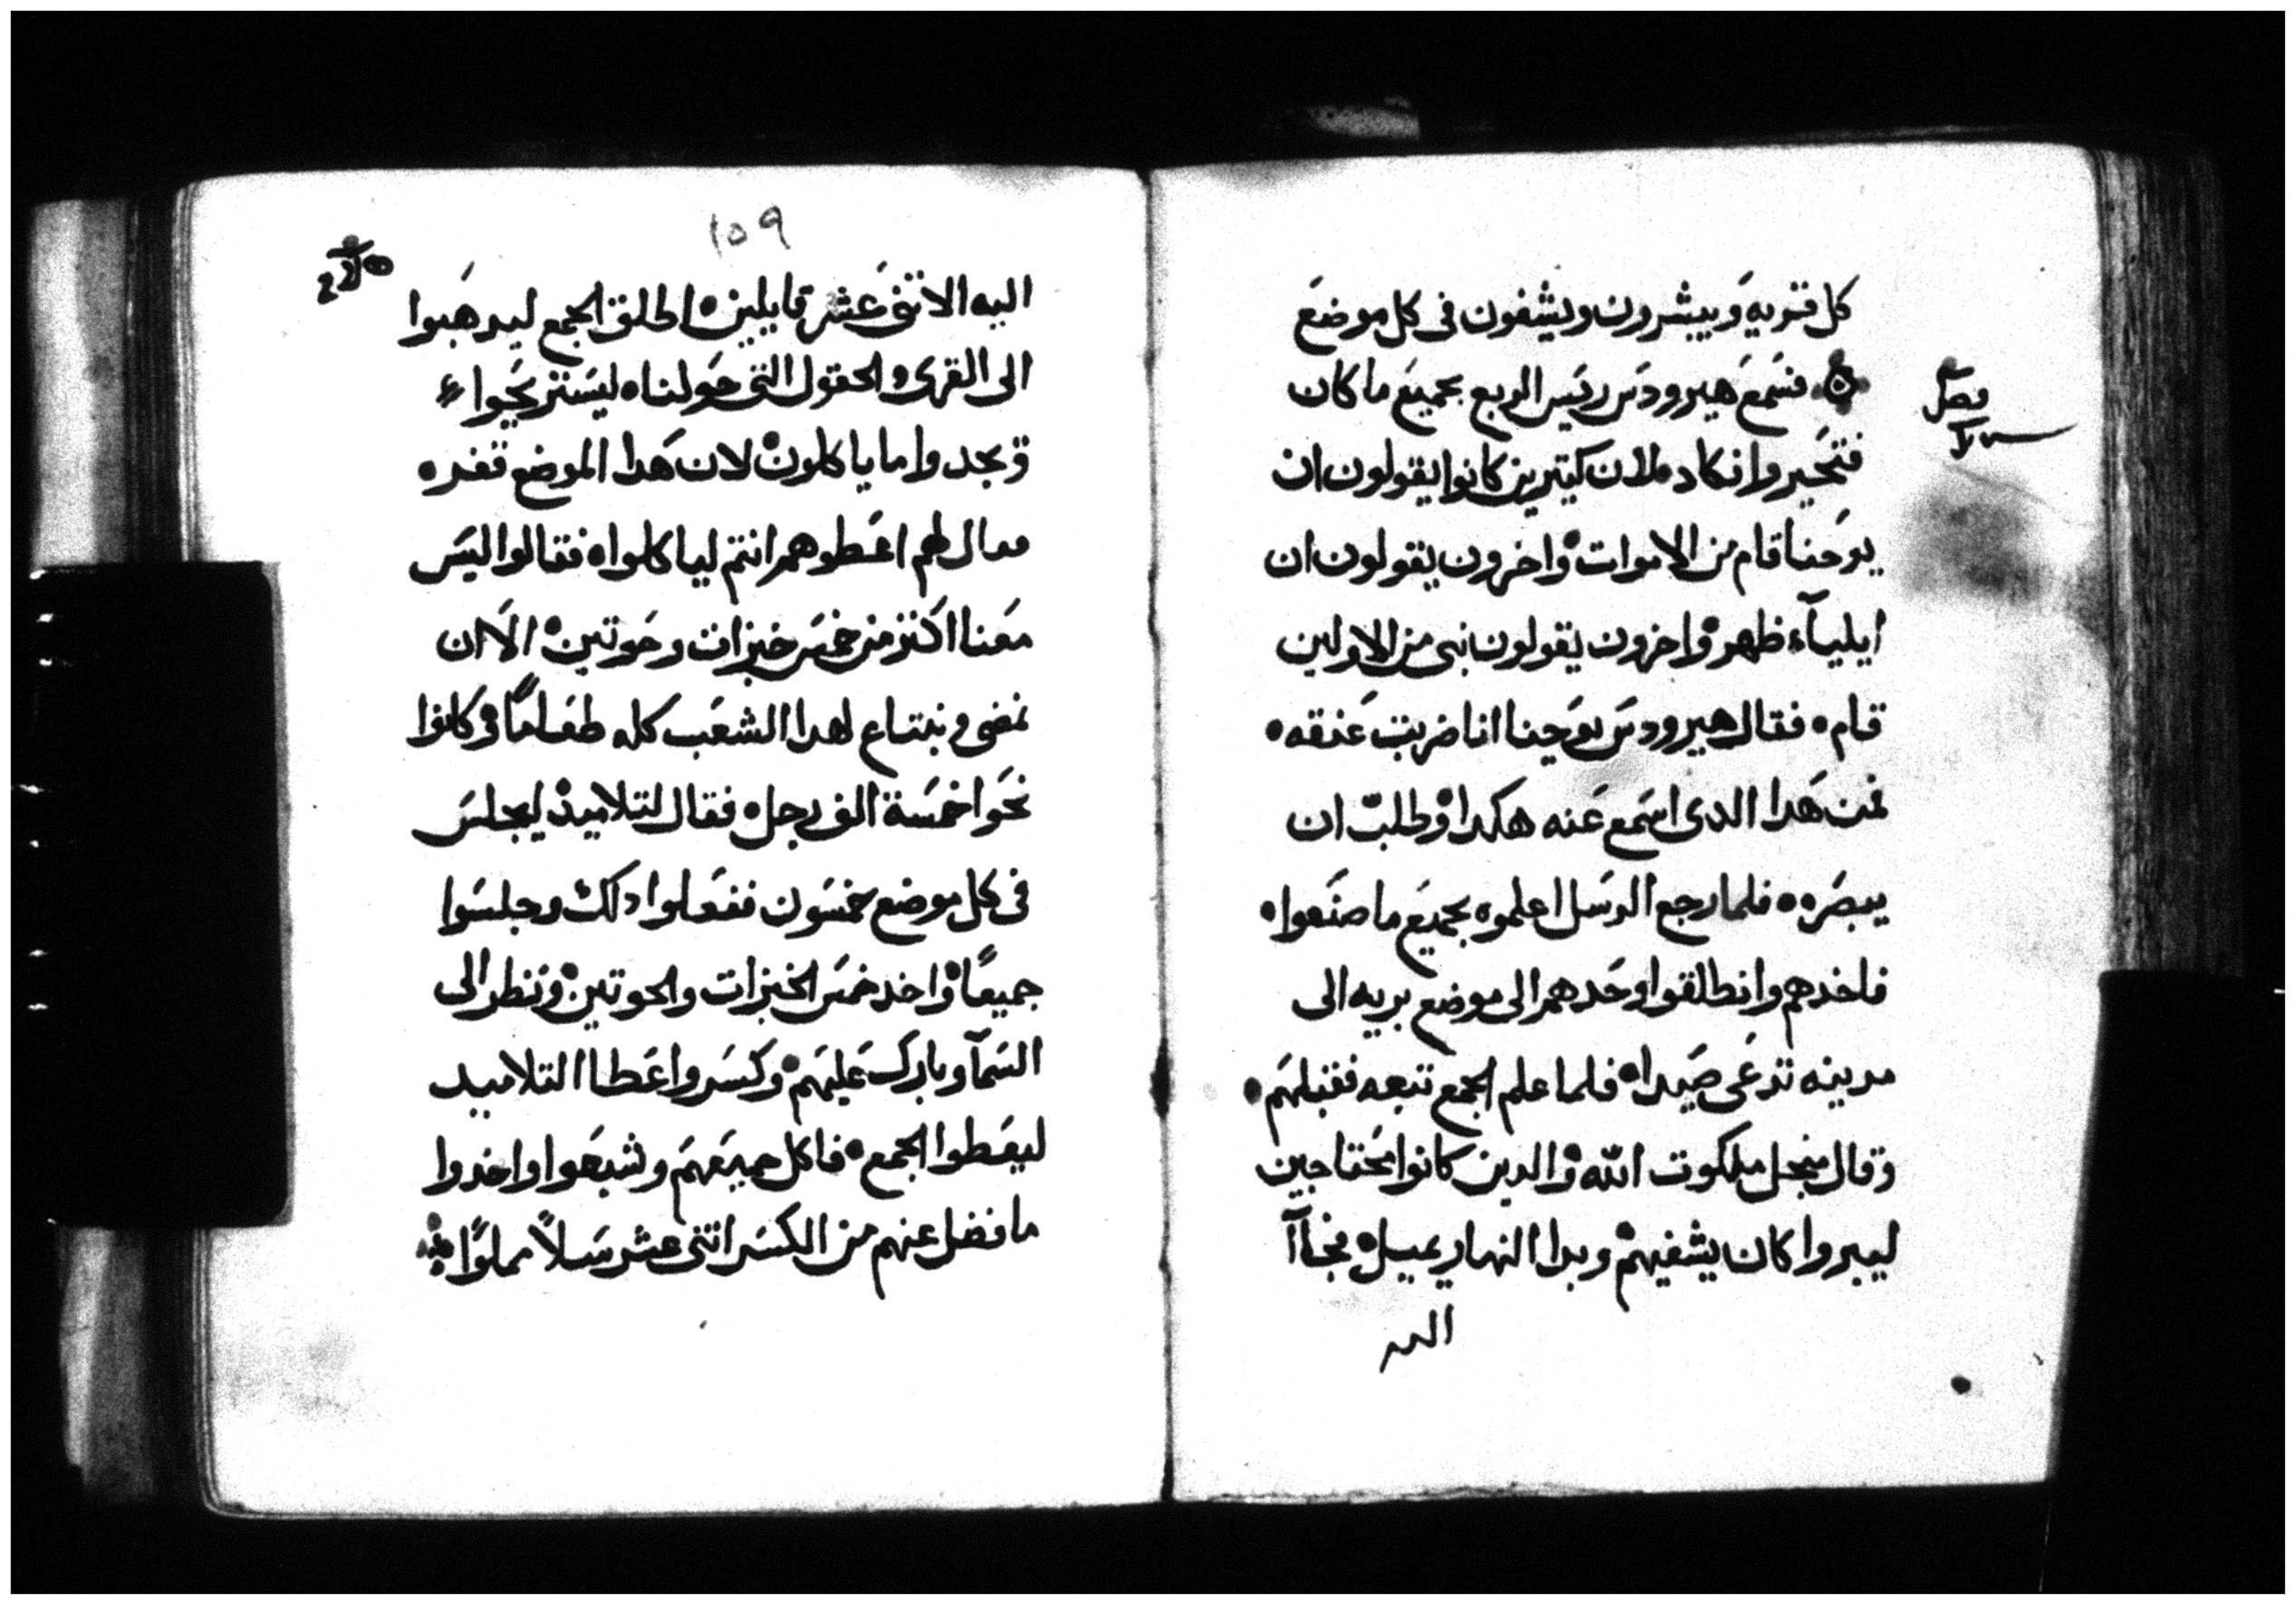 كل قريه ويبشرون ويشفون فى كل موضع
فصل
فسمع هيرودس رييس الربع بجميع ما كان
فتحير وانكاد ملان كتيرين كانوا يقولون ان
يوحنا قام من الاموات واخرون يقولون ان
ايلياء ظهر واخرون يقولون نبى من الاولين
قام فقال هيرودس يوحنا انا ضربت عنقه
فمن هدا الدى اسمع عنه هكدا وطلب ان
يبصره فلما رجع الرسل اعلموه بجميع ما صنعوا
فاخدهم وانطلقوا وحدهم الى موضع بريه الى
مدينه تدعى صيدا فلما علم الجمع تبعه فقبلهم
وقال من اجل ملكوت الله والدين كانوا محتاجين
ليبروا كان يشفيهم وبدا النهار يميل فجاآ
اليه
١٥٩
اليه الاتنى عشر قايلين اطلق الجمع ليدهبوا
الى القرى والحقول التى حولنا ليستريحوا
ويجدوا ما ياكلون لان هدا الموضع قفر
فقال لهم اعطوهم انتم لياكلوا فقالوا ليس
معنا اكتر من خمس خبزات وحوتين الا ان
نمضى ونبتاع لهدا الشعب كله طعاما وكانوا
نحو اخمسة الف رجل فقال لتلاميد ليجلس
فى كل موضع خمسون ففعلوا دلك وجلسوا
جميعًا واخد خمس الخبزات والحوتين ونظر الى
السمآ وبارك عليهم وكسر واعطا التلاميد
ليعطوا الجمع فاكل جميعهم وشبعوا واخدوا
ما فضل عنهم من الكسر اتنى عشر سلاً مملوًا